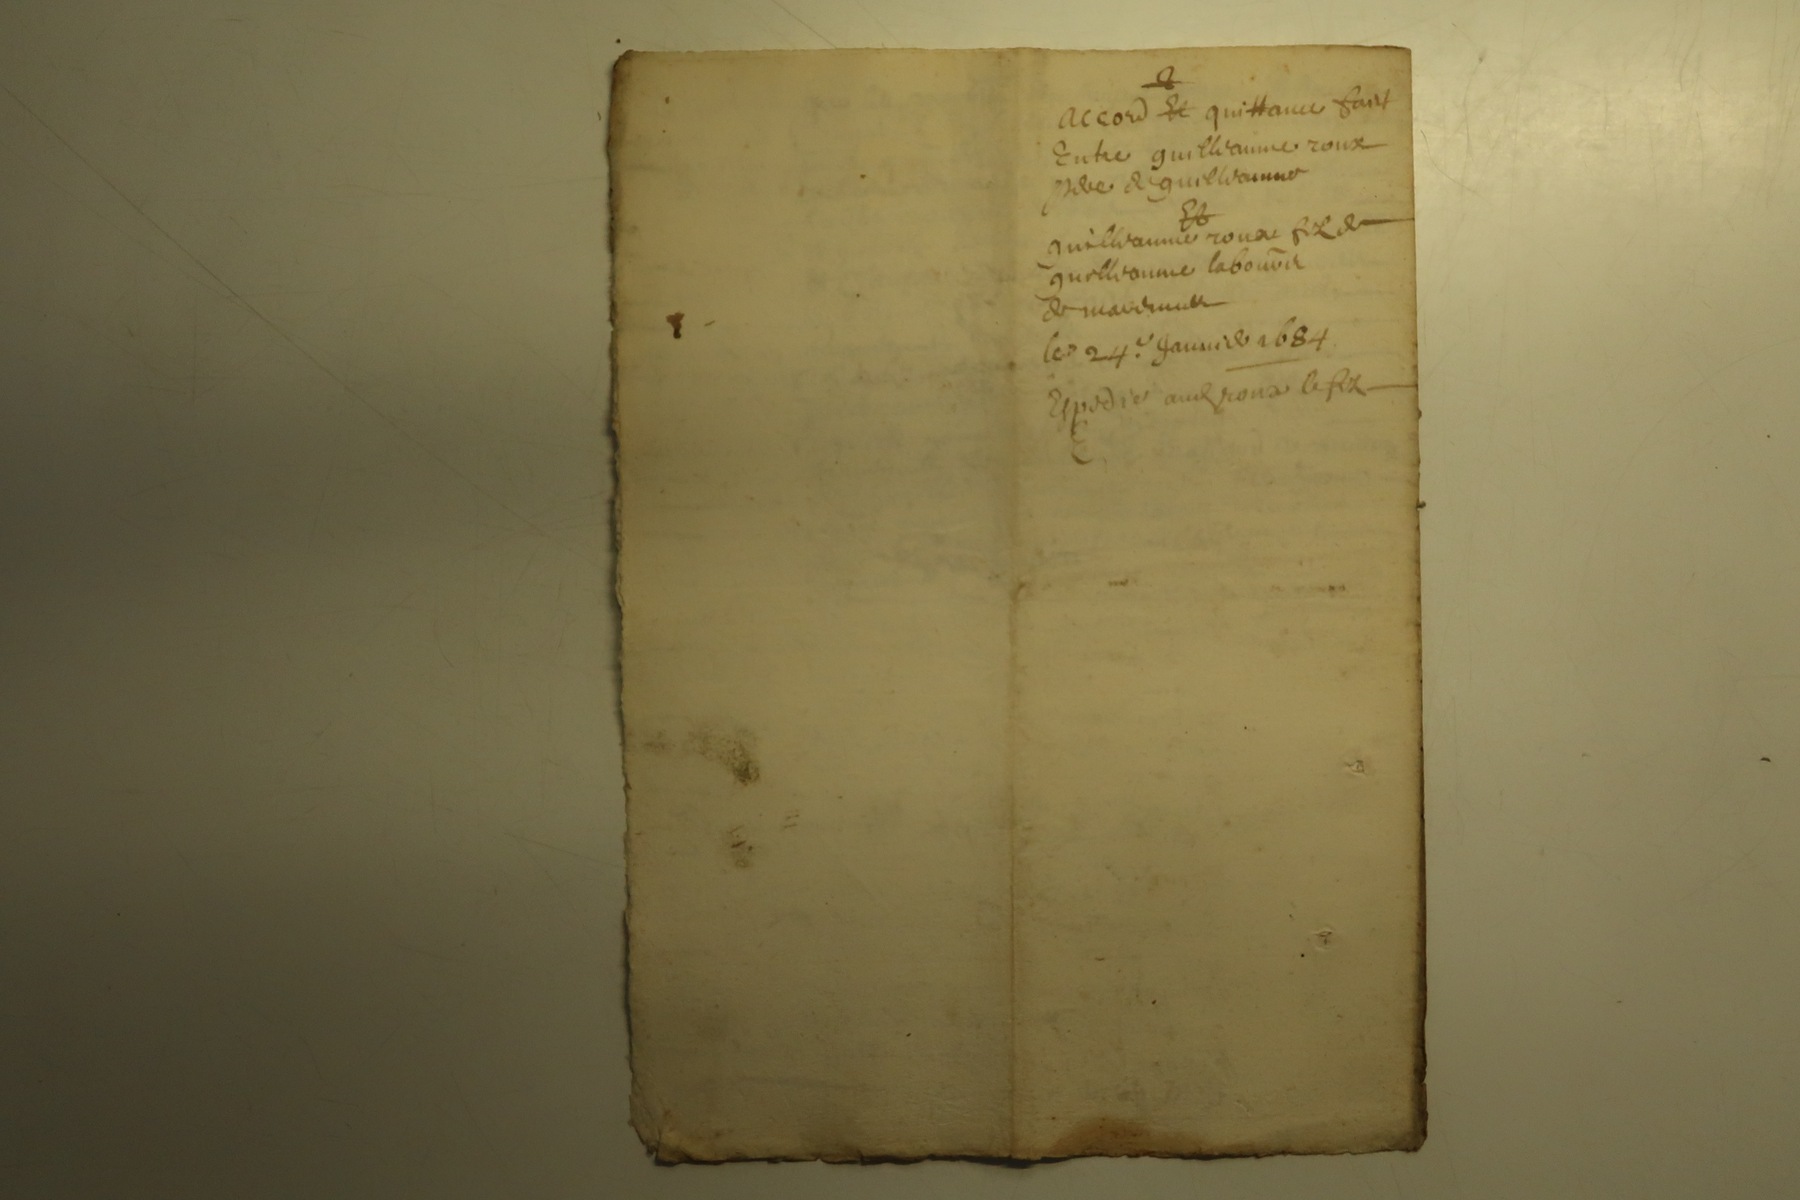 2
Accord Et quittance fait
Entre guilhaume roux
pere de guilhaume
Et
guilhaume roux filz de
guilhaume laboureur
de
le 24.e Janvier 1684
Expedié aud roux le filz